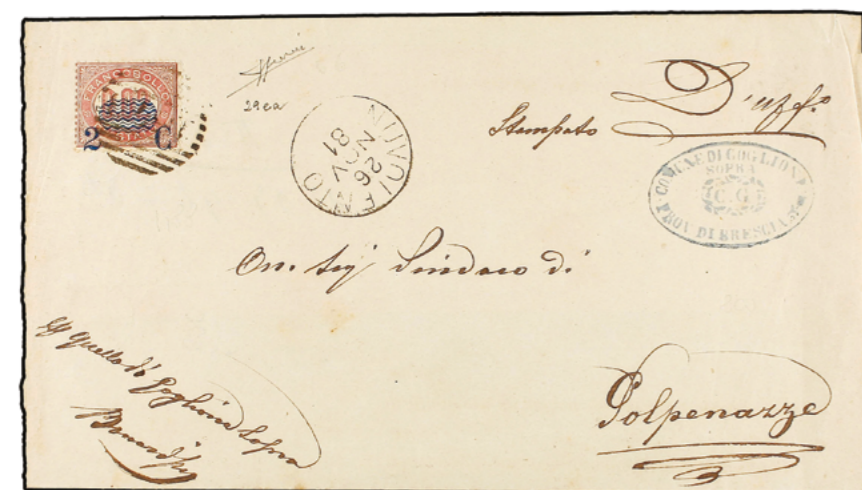 FRANCOBOLLO
2 C
29ca
NUVOLENTO
26
NOV
81
Stampato
D'uff.o
COMUNE DI GOGLIONE
SOPRA
C.G.
PROV DI BRESCIA
On. Sig Sindaco di
Polpenazze
Quello di Goglione Sopra